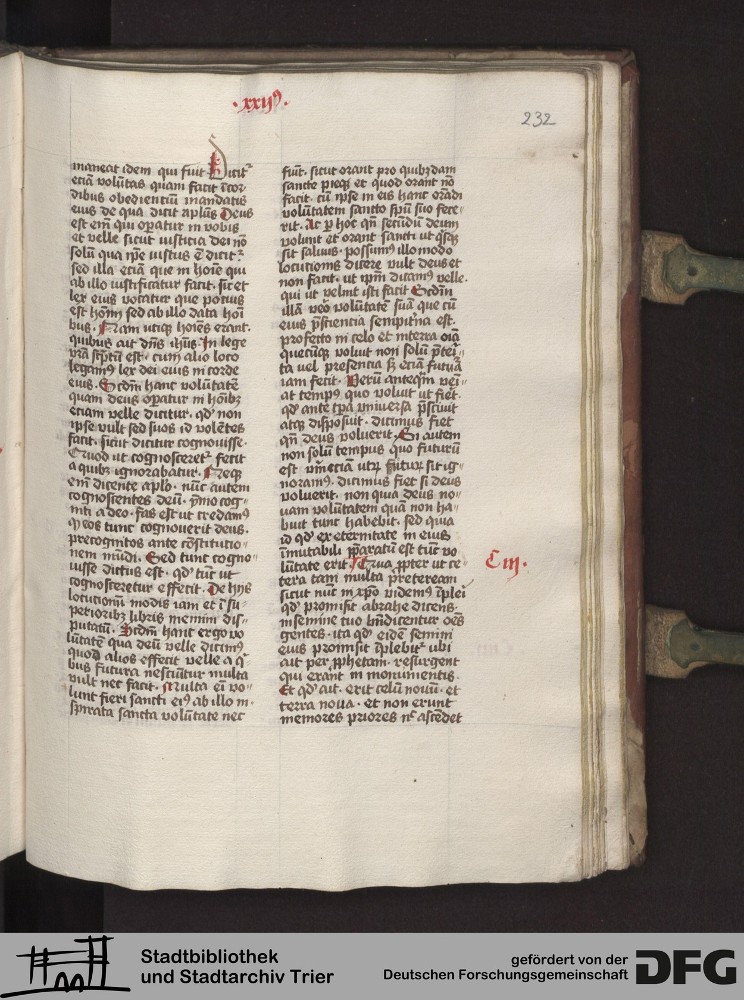 ·xxij⁹·
232
maneat idem qui fuit· Dicit᷒
etiā volūtas quam facit ī cor
dibus obedientiū mandatis
eius de qua dicit aplūs Deus
est em̄ qui oꝑatur in vobis
et velle sicut iusticia dei nō
solū qua ip̄e iustus ē dicit᷒
sed illa etiā que in hoīe qui
ab illo iustificatur facit· sic et
lex eius vocatur que potius
est homī sed ab illo data homī
bus· Nam vtiqꝫ hoīes erant·
quibus ait dn̄s ihūs· In lege
vrā sc̄ptū est· cum alio loco
legam⁹ lex dei eius in corde
eius· Scdm̄ hanc volūtatē
quam deus oꝑatur in hoībꝫ
etiam velle dicitur· qđ non
ip̄se vult sed suos id volētes
facit· sicut dicitur cognouisse·
Quod vt cognosceret᷒ fecit
a quibꝫ ignorabatur· Neqꝫ
em̄ dicente aplo· nūc autem
cognoscentes deū· ymo cog-
niti a deo· fas est vt credam⁹
qꝫ eos tunc cognouerit deus·
precognitos ante cōstitutio-
nem mūdi· Sed tunc cogno-
uisse dictus est· qđ tūc vt
cognosceretur effecit· De hijs
locutionū modis iam et ī su-
perioribꝫ libris memini dis-
putatū· Scdm̄ hanc ergo vo
lūtatē qua deū velle dicim⁹
quod alios efficit velle a q̄
bus futura nesciūtur multa
vult nec facit· Multa ei vo-
lunt fieri sancti ei⁹ ab illo in-
spirata sancta volūtate nec
fiūt· sicut orant pro quibꝫdam
sancte pieqꝫ et quod orant nō
facit· cū ip̄se in eis hanc orādi
volūtatem sancto spū suo fece-
rit· Ac ꝑ hoc qn̄ secūdū deum
volunt et orant sancti vt q̄sqꝫ
sit saluus· possum⁹ illo modo
locutionis dicere vult deus et
non facit· vt ip̄m dicam⁹ velle·
qui vt velint isti facit Scdm̄
illā vero volūtatē suā que cū
eius p̄scientia sempit̄na est·
profecto in celo et in terra oīa
quecūqꝫ voluit non solū p̄teri-
ta vel presentia sꝫ etiā futura
iam fecit· Verū anteqꝫ̄ veī-
at temp⁹ quo voluit vt fiet·
qđ ante tꝑa vniuersa p̄sciuit
atqꝫ disposuit· dicimus fiet
qn̄ deus voluerit· Si autem
non solū tempus quo futurū
est vm̄ etiam vtꝝ futuꝝ sit ig-
noram⁹· dicimus fiet si deus
voluerit· non quia deus no-
uam volūtatem quā non ha-
buit tunc habebit· sed quia
id qđ ex eternitate in eius
īmutabili p̄paratū est tūc vo
lūtate erit· Qua ꝓpter vt ce-
tera tam multa pretereeam·
sicut nūc in xp̄o videm⁹ īpleri
qđ promisit abrahe dicens·
in semine tuo bn̄dicentur oēs
gentes· ita qđ eidē semini
eius promisit īplebit᷒ ubi
ait per ꝓphetam· resurgent
qui erant in monumentis·
Et qđ ait· erit celū nouū· et
terra noua· et non erunt
memores priores nec ascēdet
C iij·
Stadtbibliothek
und Stadtarchiv Trier
gefördert von der
Deutschen Forschungsgemeinschaft
DFG